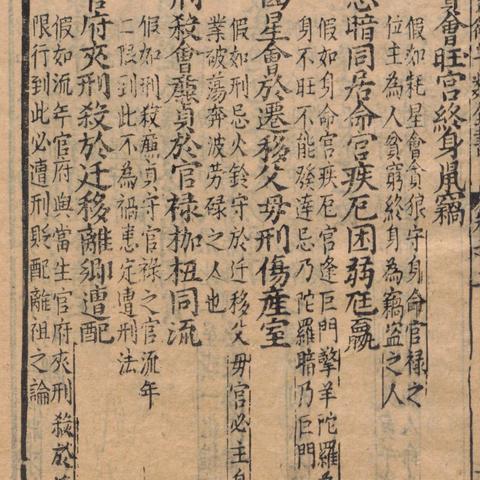 會旺宮終身鼠竊
假如耗星會貪狼守身命官祿之
位主為人貧窮終身為竊盜之人
暗同居命宮疾厄困弱尫羸
假如身命宮疾厄宮逢巨門擎羊陀羅
身不旺不能發達忌乃陀羅暗乃巨門
星會於遷移父母刑傷產室
假如刑忌火鈴守於迁移父母宮必主
業破蕩奔波勞碌之人也
殺會廉貞於官祿枷杻同流
假如刑殺廉貞守官祿之宮流年
二限到此不為禍患定遭刑法
官府夾刑殺於迁移離鄉遭配
假如流年官府與當生官府夾刑殺於
限行到此必遭刑貶配離祖之論